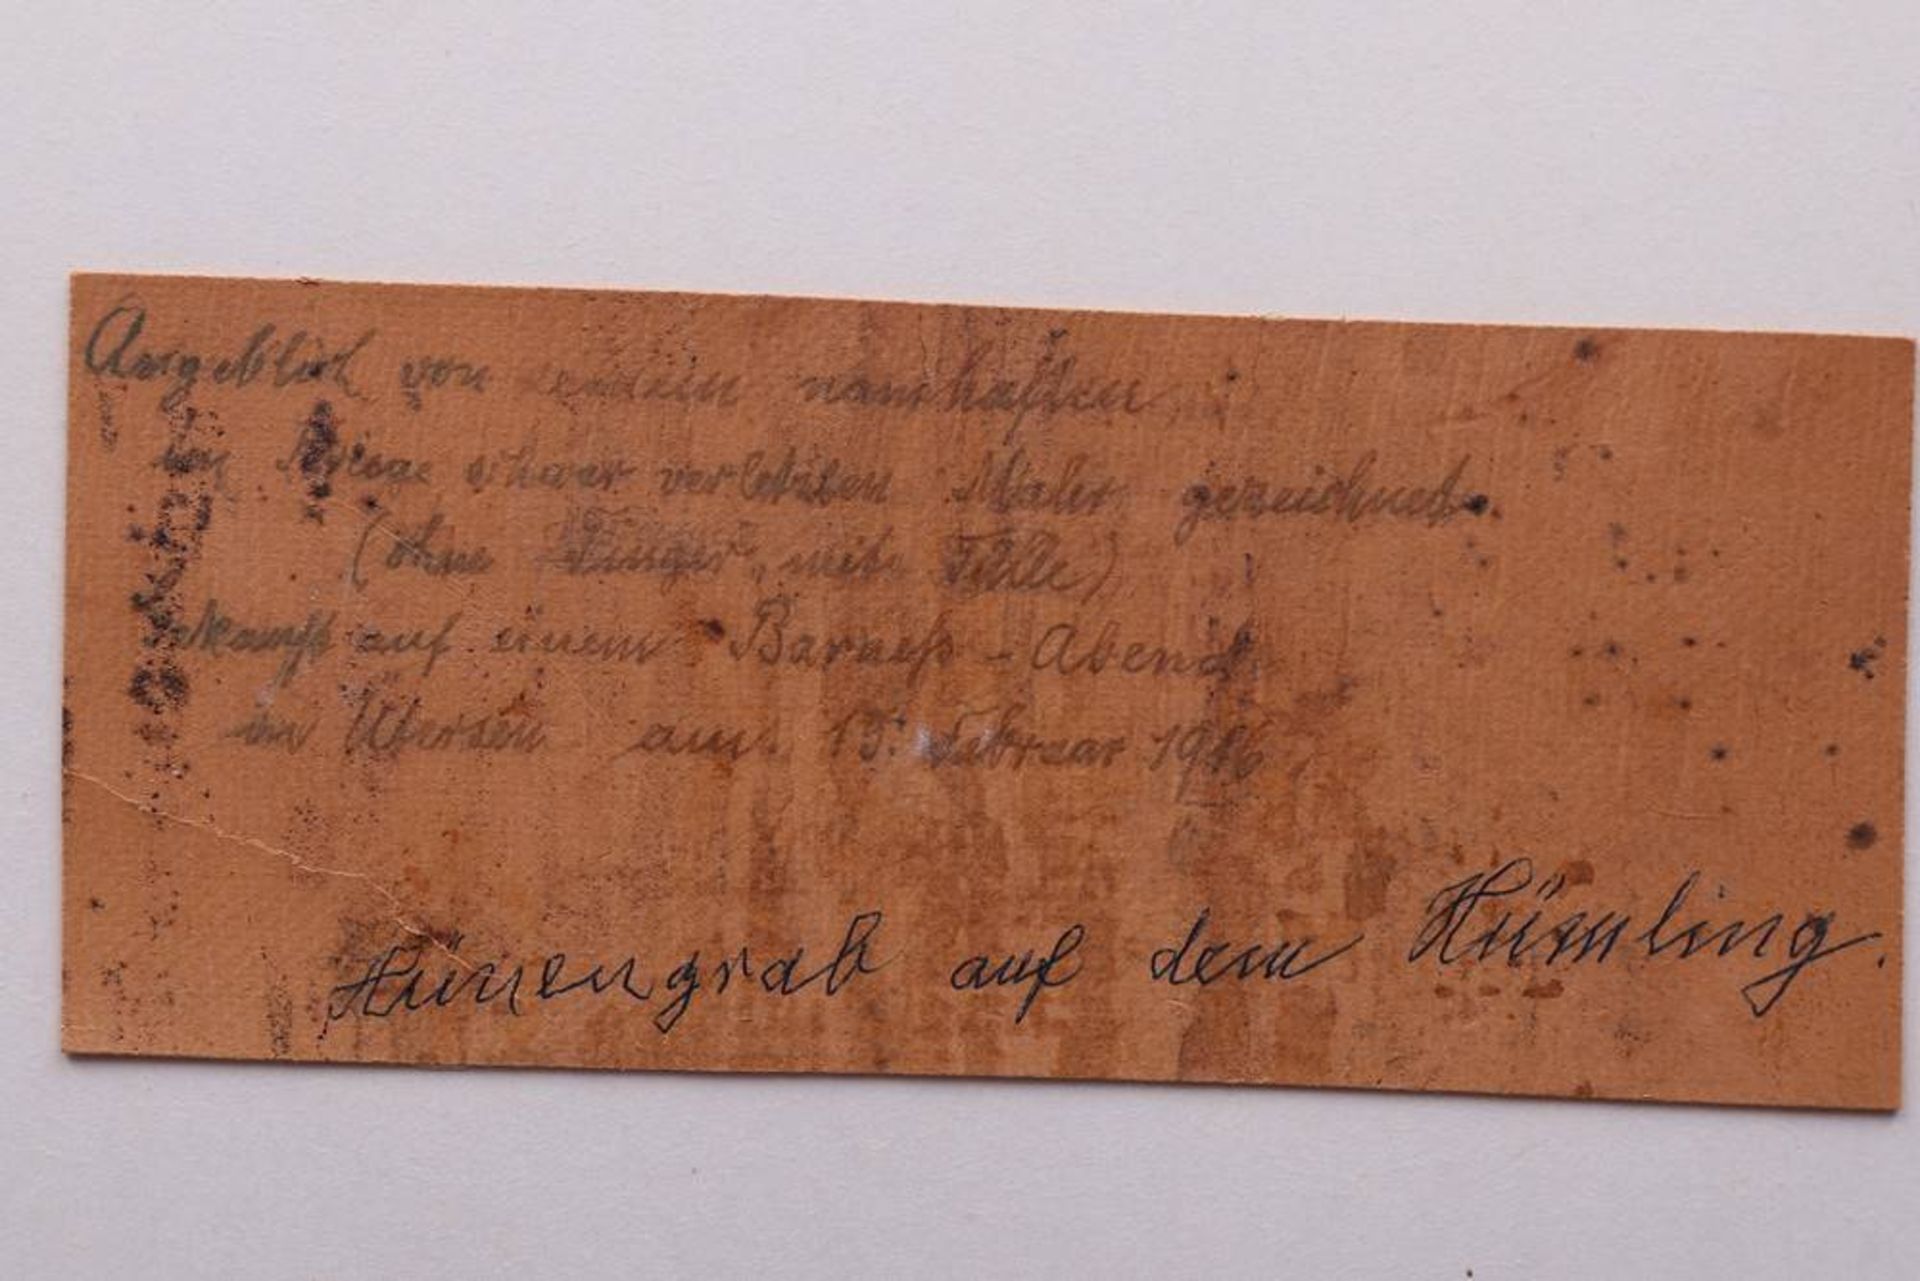 Angeblich von einem namhaften
im Kriege schwer verletzten Maler gezeichnet.
(ohne Finger, mit
auf einem Barneß - Abend
in am 15. Februar
Hünengrab auf dem Hümling.